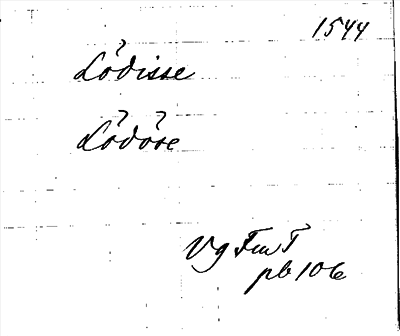 1544
Lödisse
Lödöse
Vg FmT
pb 106